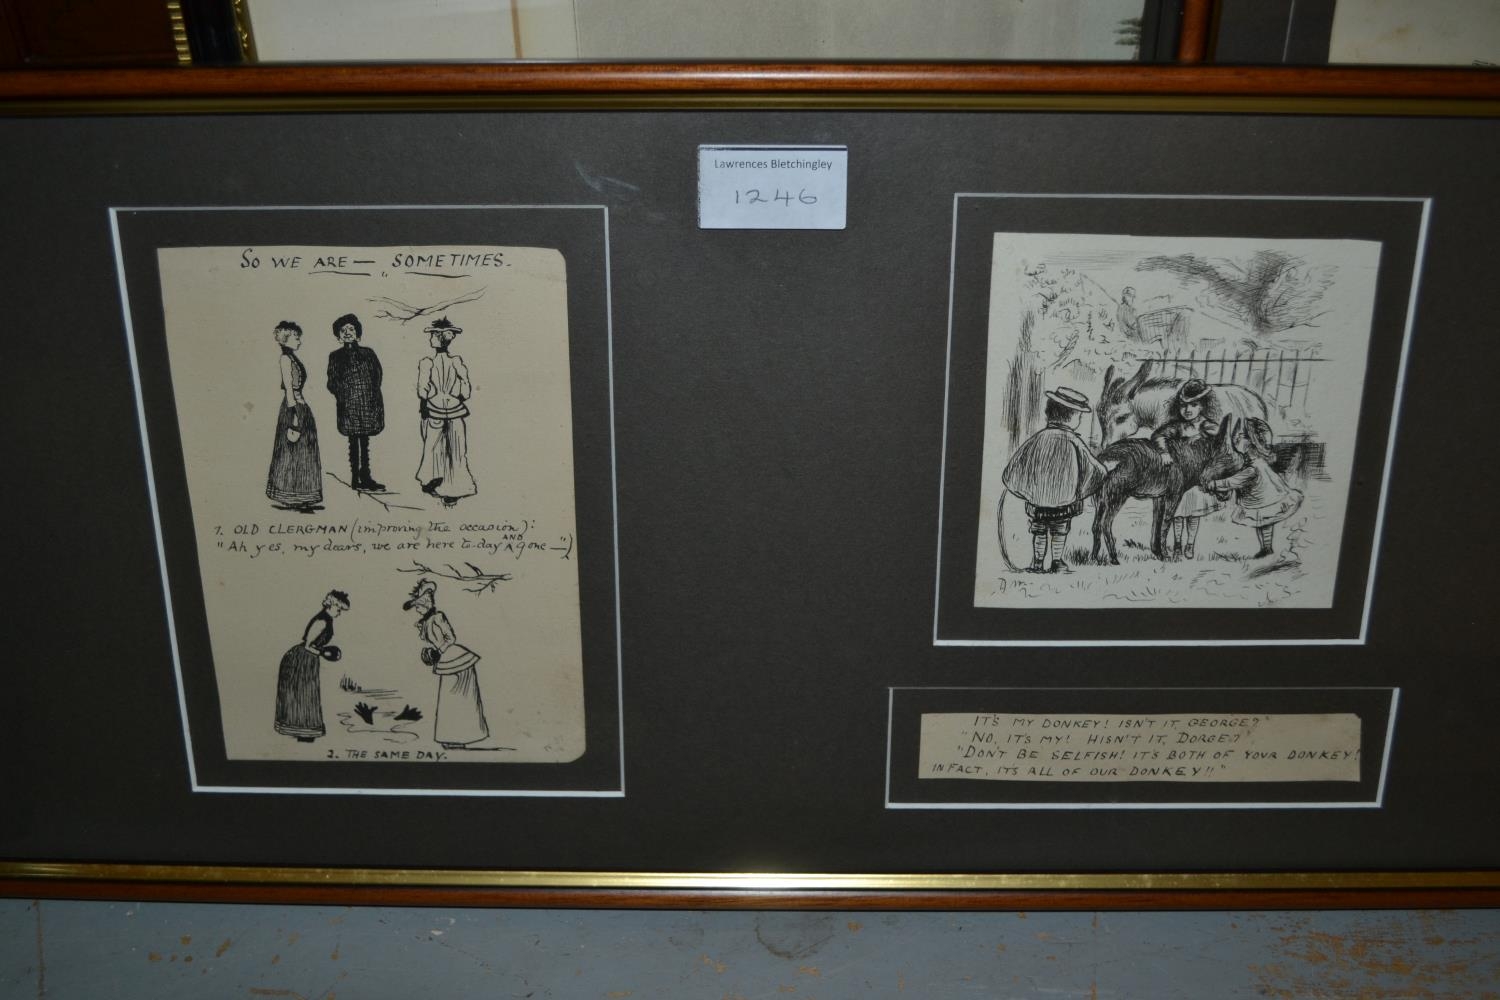 Lawrences Bletchingley
1246
SO WE ARE — SOMETIMES.
1. OLD CLERGMAN (improving the occasion):
"Ah yes, my dears, we are here to-day AND gone —")
2. THE SAME DAY.
IT'S MY DONKEY! ISN'T IT, GEORGE?"
"NO, IT'S MY! HISN'T IT, DORGE?"
"DON'T BE SELFISH! IT'S BOTH OF YOUR DONKEY!
IN FACT, IT'S ALL OF OUR DONKEY!!"